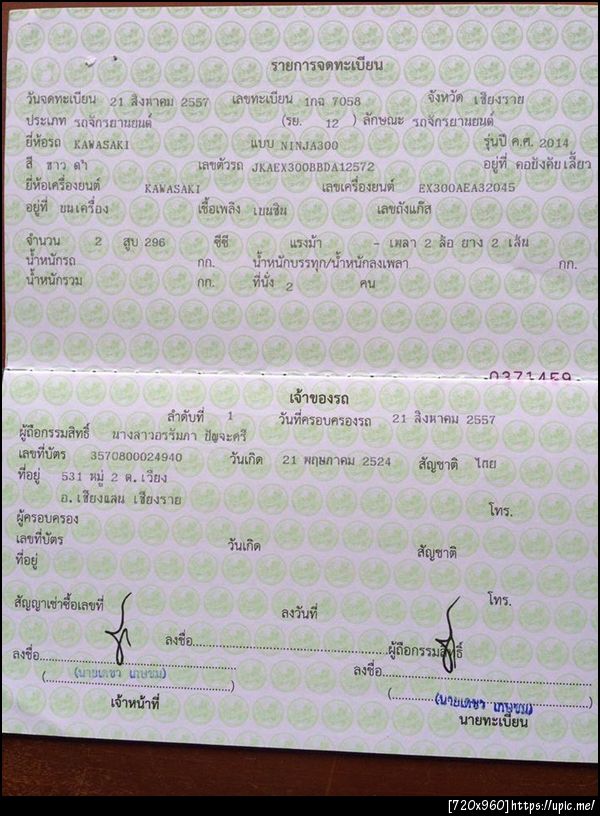 รายการจดทะเบียน
วันจดทะเบียน 21 สิงหาคม 2557 เลขทะเบียน 1กฉ 7058 จังหวัด เชียงราย
ประเภท รถจักรยานยนต์ (รย. 12 ) ลักษณะ รถจักรยานยนต์
ยี่ห้อรถ KAWASAKI แบบ NINJA300 รุ่นปี ค.ศ. 2014
สี ขาว ดำ เลขตัวรถ JKAEX300BBDA12572 อยู่ที่ คอยังคัย เลี้ยว
ยี่ห้อเครื่องยนต์ KAWASAKI เลขเครื่องยนต์ EX300AEA32045
อยู่ที่ บนเครื่อง เชื้อเพลิง เบนซิน เลขถังแก๊ส
จำนวน 2 สูบ 296 ซีซี แรงม้า - เพลา 2 ล้อ ยาง 2 เส้น
น้ำหนักรถ กก. น้ำหนักบรรทุก/น้ำหนักลงเพลา กก.
น้ำหนักรวม กก. ที่นั่ง 2 คน
0371459
เจ้าของรถ
ลำดับที่ 1 วันที่ครอบครองรถ 21 สิงหาคม 2557
ผู้ถือกรรมสิทธิ์ นางสาวอรรัมภา ปัญจะศรี
เลขที่บัตร 3570800024940 วันเกิด 21 พฤษภาคม 2524 สัญชาติ ไทย
ที่อยู่ 531 หมู่ 2 ต.เวียง
อ.เชียงแสน เชียงราย
โทร.
ผู้ครอบครอง
เลขที่บัตร วันเกิด สัญชาติ
ที่อยู่
โทร.
สัญญาเช่าซื้อเลขที่ ลงวันที่
ลงชื่อ ผู้ถือกรรมสิทธิ์
ลงชื่อ ลงชื่อ
(นายเดชา เกษชม) (นายเดชา เกษชม)
เจ้าหน้าที่ นายทะเบียน
[720x960]https://upic.me/